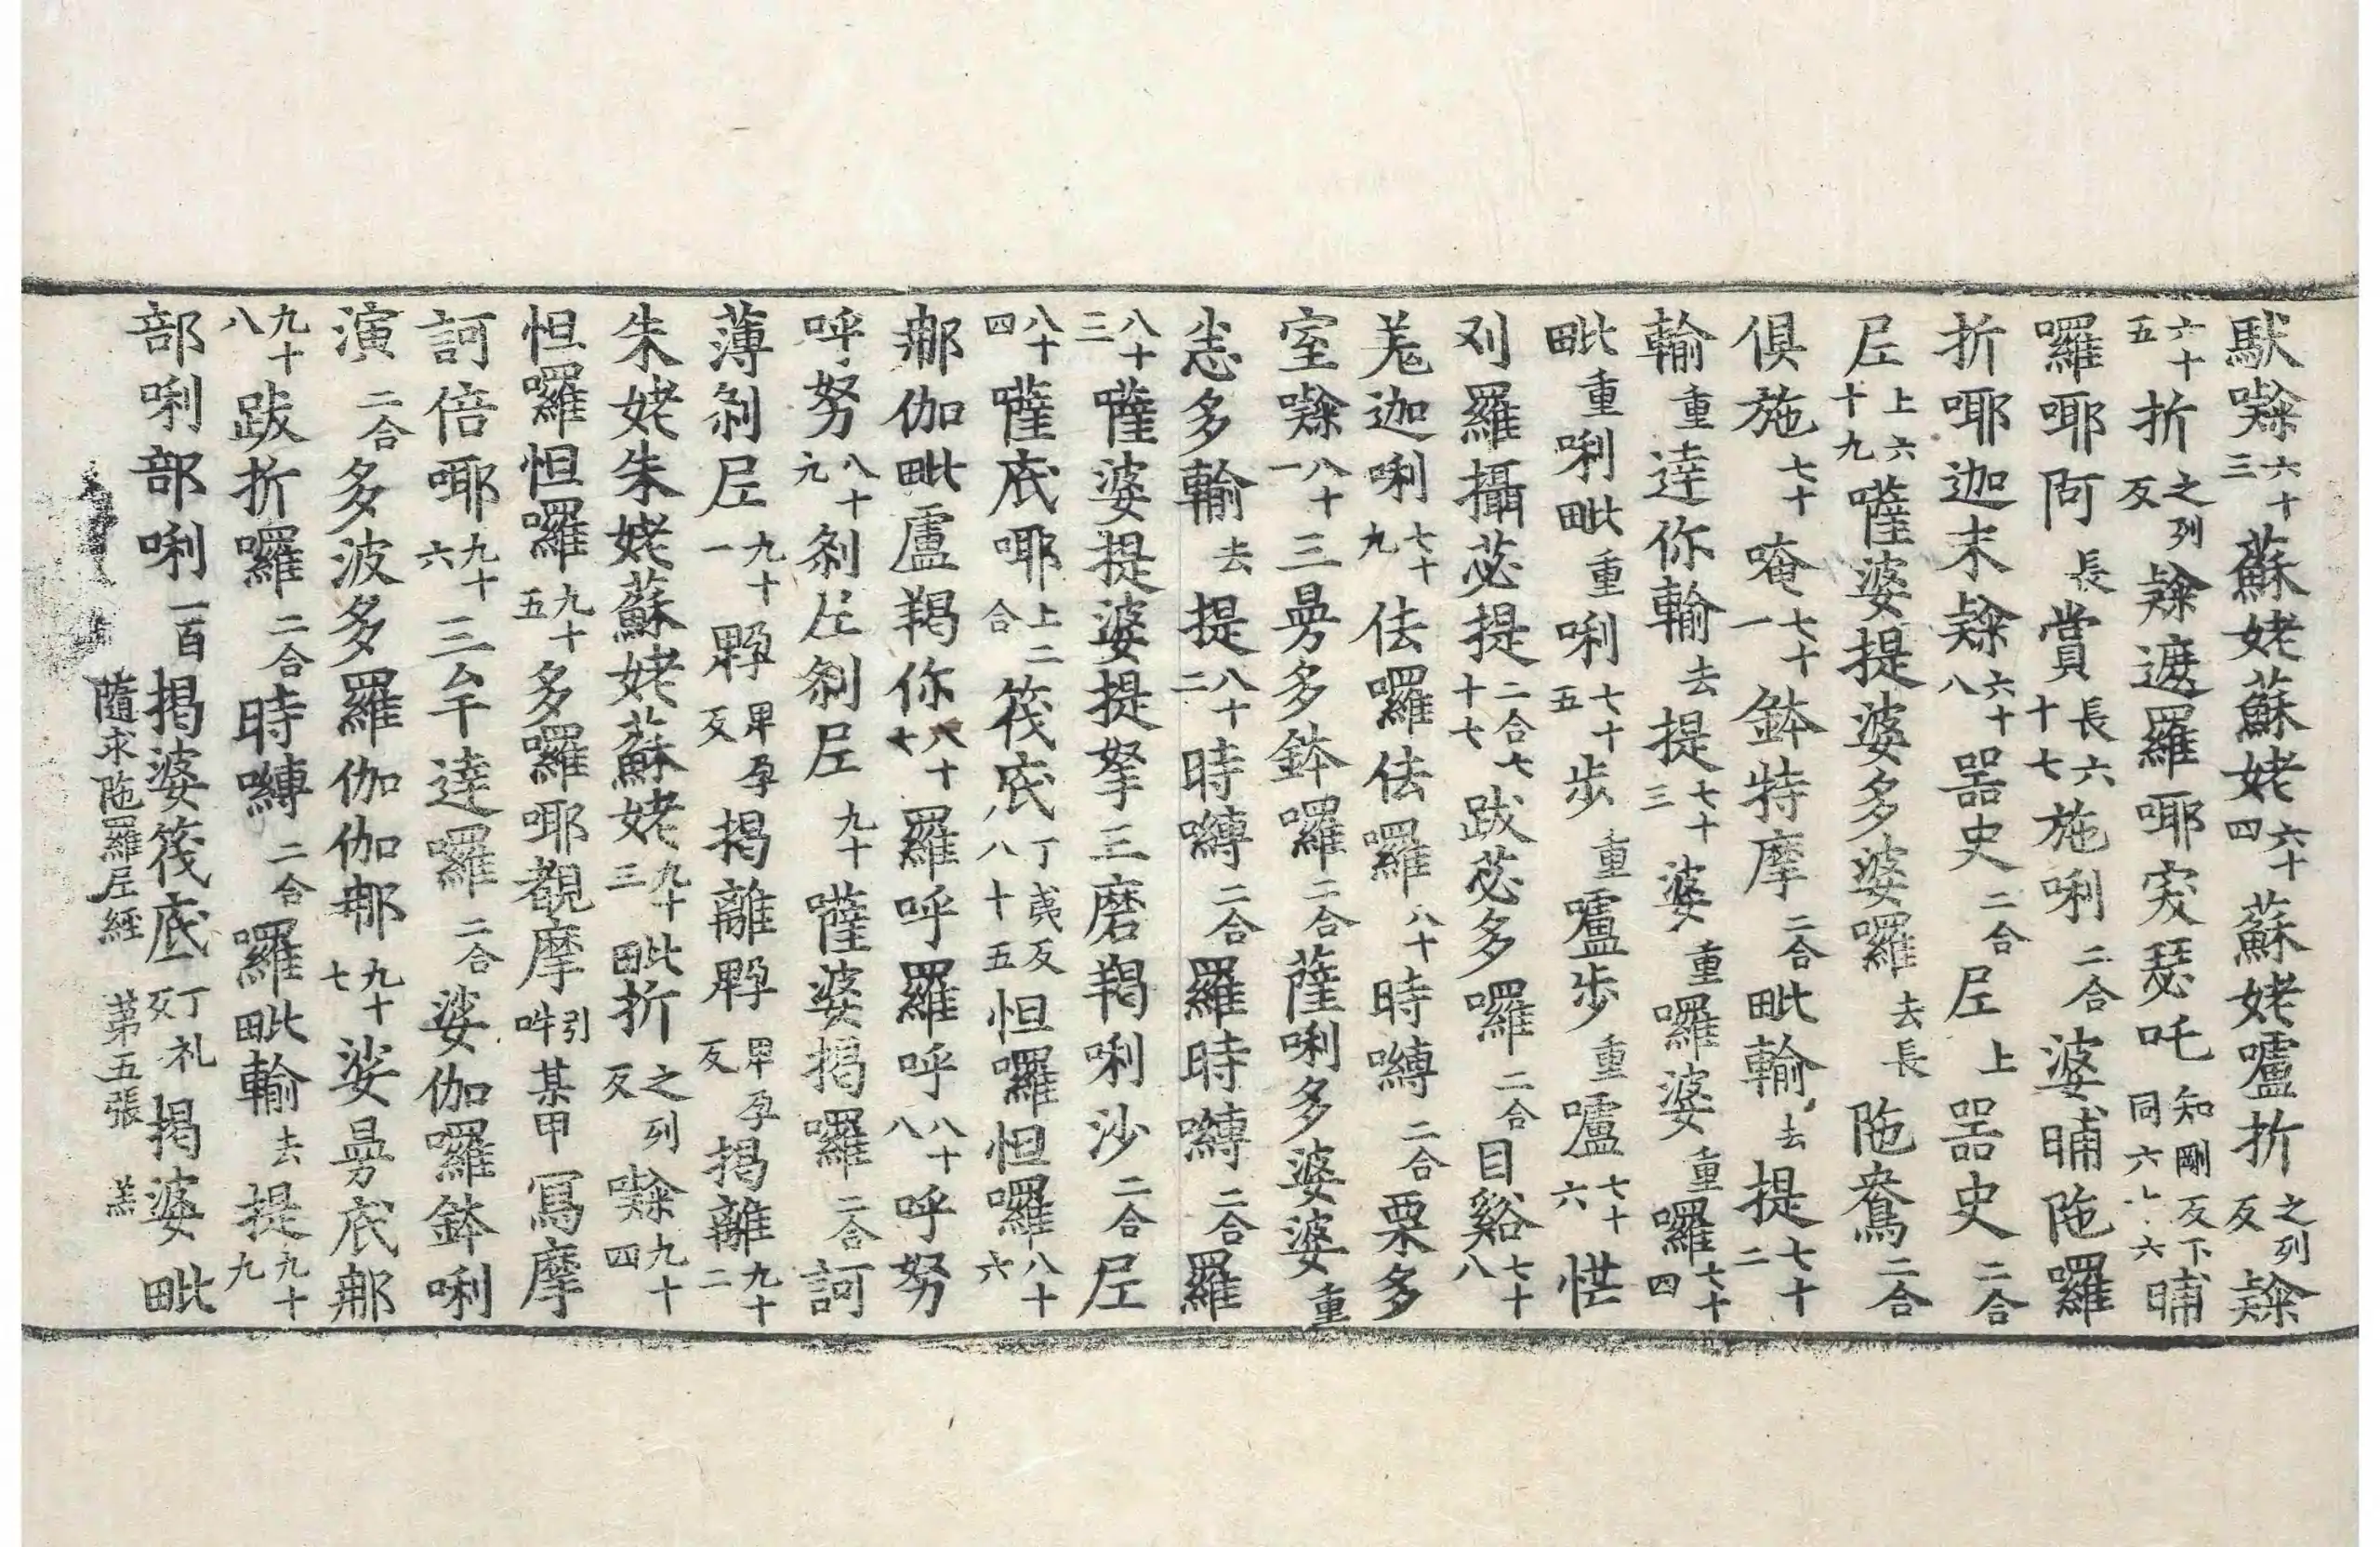 馱㘑六十三蘇姥蘇姥六十四蘇姥嚧折之列反㘑
六十五折之列反㘑遮羅耶窣瑟吒知剛反下同六十六晡
囉耶阿長賞長六十七施唎二合婆晡陁囉
折耶迦末㘑六十八噐史二合𡰱上噐史二合
𡰱上六十九薩婆提婆多婆囉去長陁鴦二合
俱施七十唵七十一鉢特摩二合毗輸去提七十二
輸重達你輸去提七十三婆重囉婆重囉七十四
毗重唎毗重唎七十五步重嚧步重嚧七十六恾
刈羅攝苾提二合七十七跋苾多囉二合目谿七十八
羗迦唎七十九佉囉佉囉八十時嚩二合栗多
室㘑八十一三曼多鉢囉二合薩唎多婆婆重
恙多輸去提八十二時嚩二合羅時嚩二合羅
八十三薩婆提婆提拏三磨羯唎沙二合𡰱
八十四薩底耶上二合筏底丁夷反八十五怛囉怛囉八十六
那伽毗盧羯你八十七羅呼羅呼八十八呼努
呼努八十九刹𡰱刹𡰱九十薩婆揭囉二合訶
薄刹𡰱九十一䫂畢孕反揭離䫂畢孕反揭離九十二
朱姥朱姥蘇姥蘇姥九十三毗折之列反㘑九十四
怛囉怛囉九十五多囉耶覩摩引吽某甲寫摩
訶倍耶九十六三牟達囉二合娑伽囉鉢唎
演二合多波多羅伽伽那九十七娑曼底那
九十八跋折囉二合時嚩二合囉毗輸去提九十九
部唎部唎一百揭婆筏底丁礼反揭婆毗
隨求陁羅𡰱經　第五張　羔